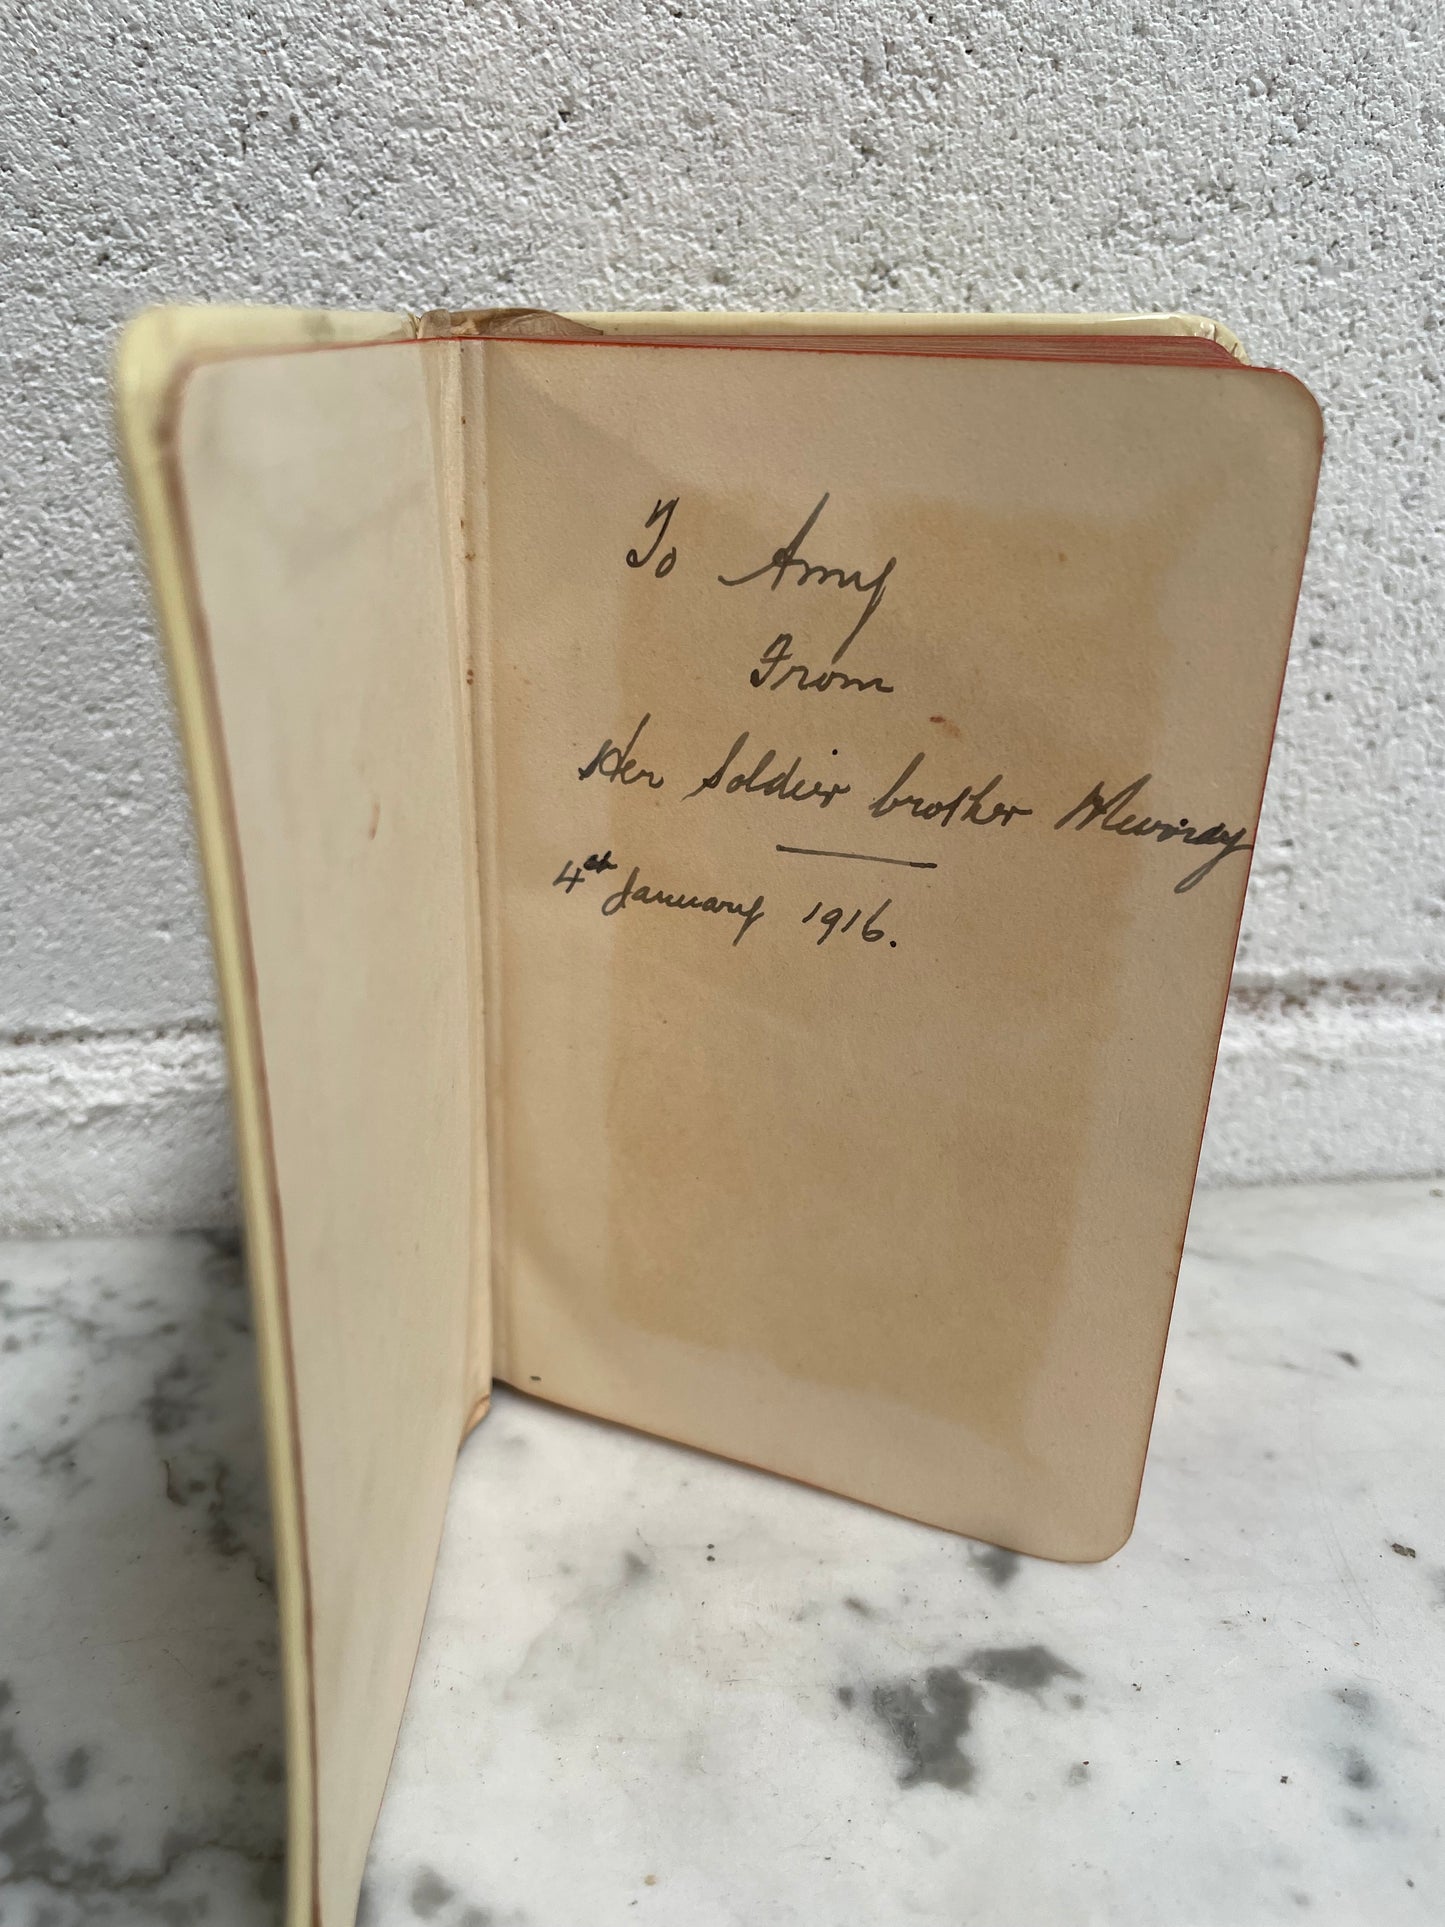 To Amy
From
Her Soldier brother
4th January 1916.